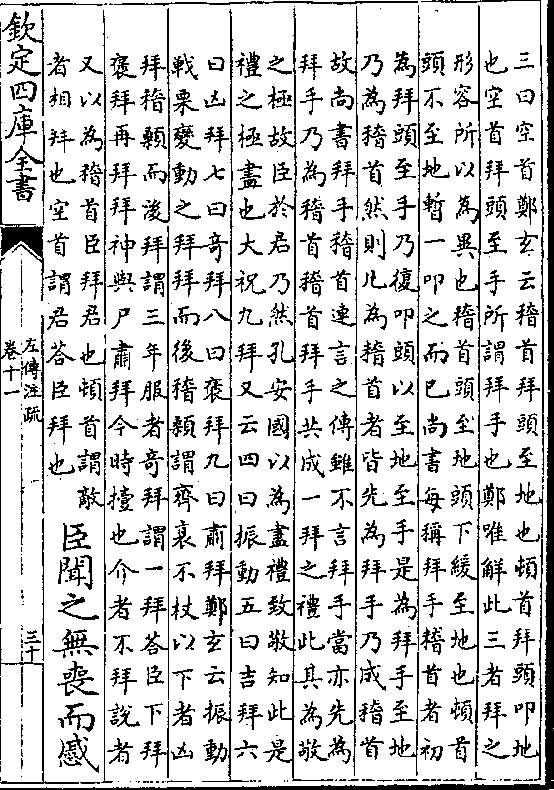 三曰空首鄭玄云稽首拜頭至地也頓首拜頭叩地
也空首拜頭至手所謂拜手也鄭唯解此三者拜之
形容所以為異也稽首頭至地頭下緩至地也頓首
頭不至地暫一叩之而已尚書每稱拜手稽首者初
為拜頭至手乃復叩頭以至地至手是為拜手至地
乃為稽首然則凡為稽首者皆先為拜手乃成稽首
故尚書拜手稽首連言之傳雖不言拜手當亦先為
拜手乃為稽首稽首拜手共成一拜之禮此其為敬
之極故臣於君乃然孔安國以為盡禮致敬知此是
禮之極盡也大祝九拜又云四曰振動五曰吉拜六
曰凶拜七曰奇拜八曰褒拜九曰肅拜鄭玄云振動
戰栗變動之拜拜而後稽顙謂齊衰不杖以下者凶
拜稽顙而後拜謂三年服者奇拜謂一拜答臣下拜
褒拜再拜拜神與尸肅拜今時擡也介者不拜說者
又以為稽首臣拜君也頓首謂敵
者相拜也空首謂君答臣拜也
臣聞之無喪而慼
欽定四庫全書
左傳注疏
卷十一
三十